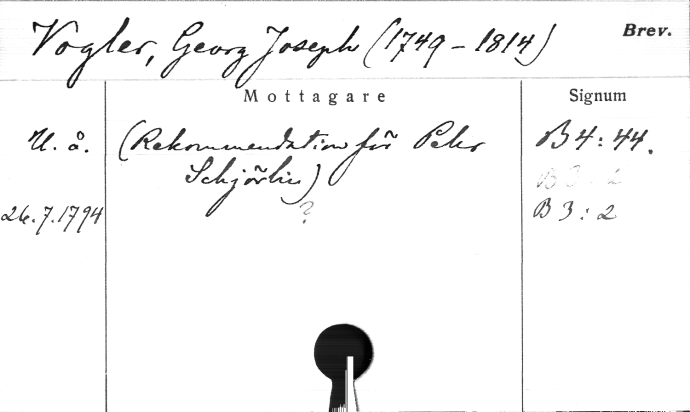 Vogler, Georg Joseph (1749-1814) Brev.
Mottagare Signum
U. å. (Rekommendation för Pehr B 4: 44.
Schjörlin) B 3: 2
26.7.1794 ? B 3: 2